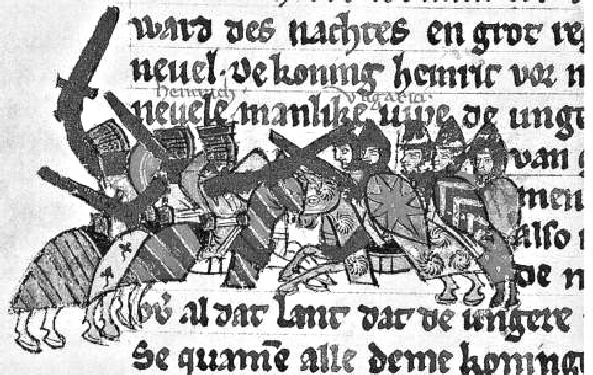 ward des nachtes en grot re
neuel. De koning heinric vor
heinrich
neuele manlike uppe de unge
van
men
also
de
al dat lant dat de ungere
Se quamē alle deme koning